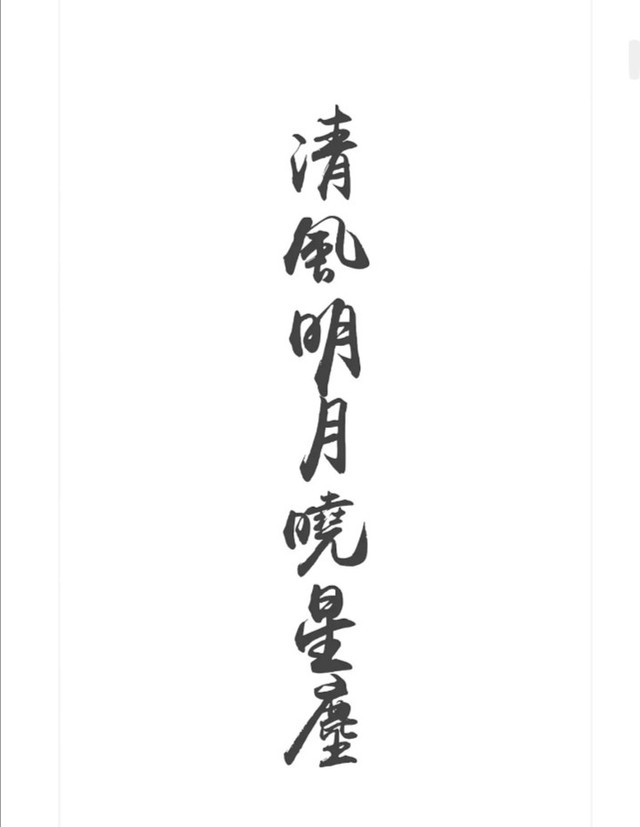 清風明月曉星塵